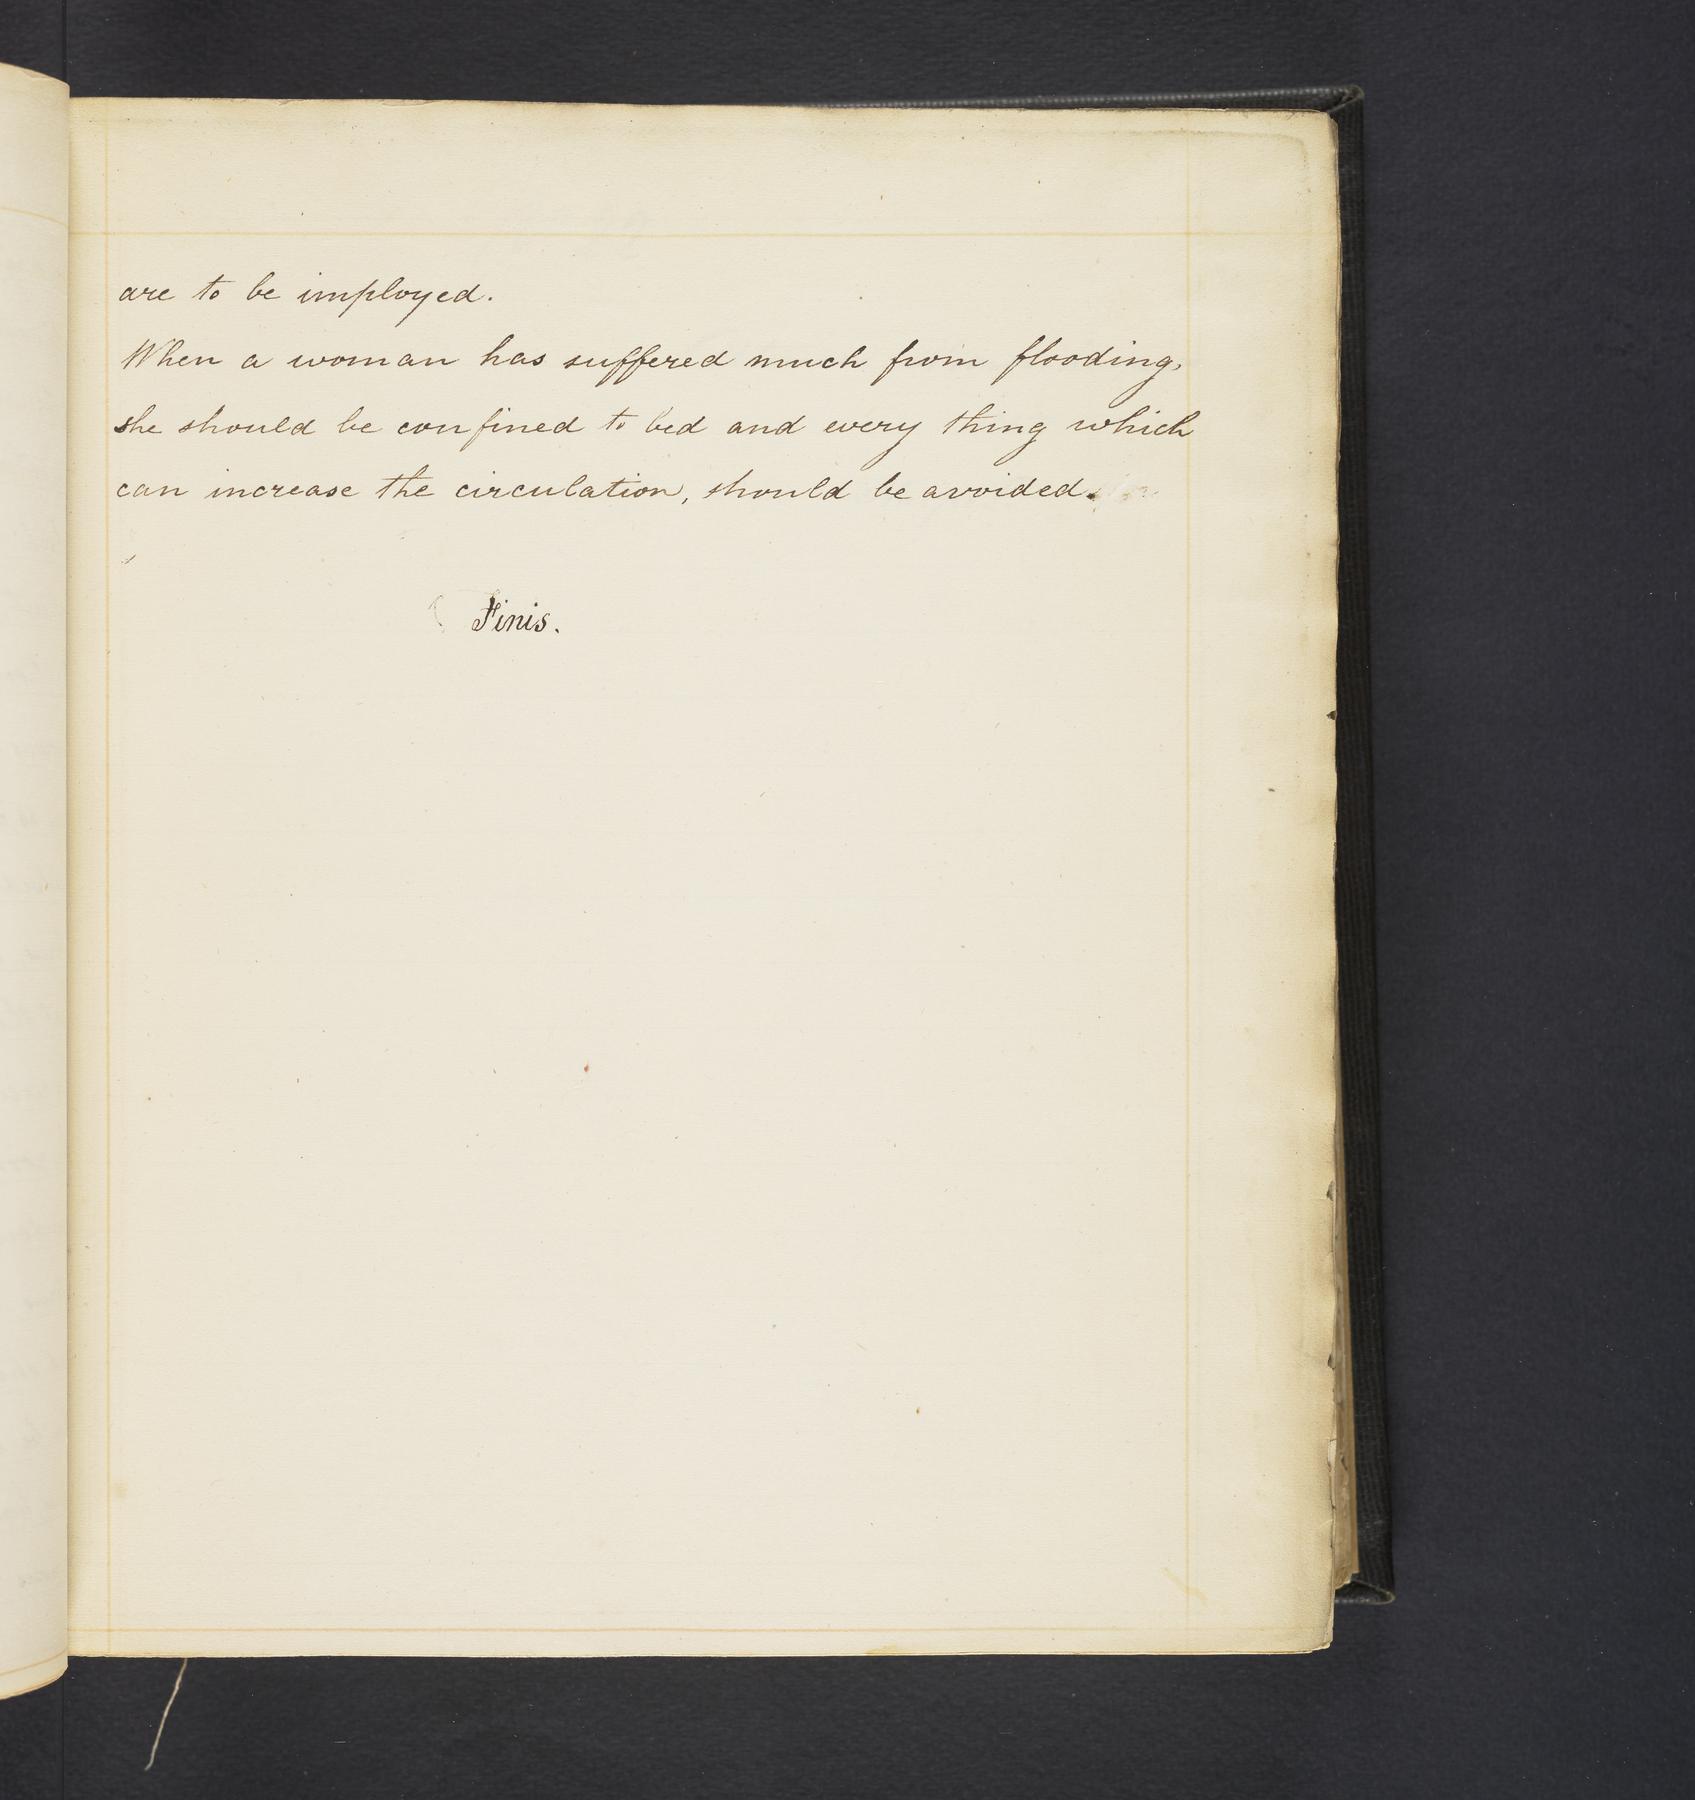 are to be imployed.
When a woman has suffered much from flooding,
she should be confined to bed and every thing which
can increase the circulation, should be avoided.
Finis.